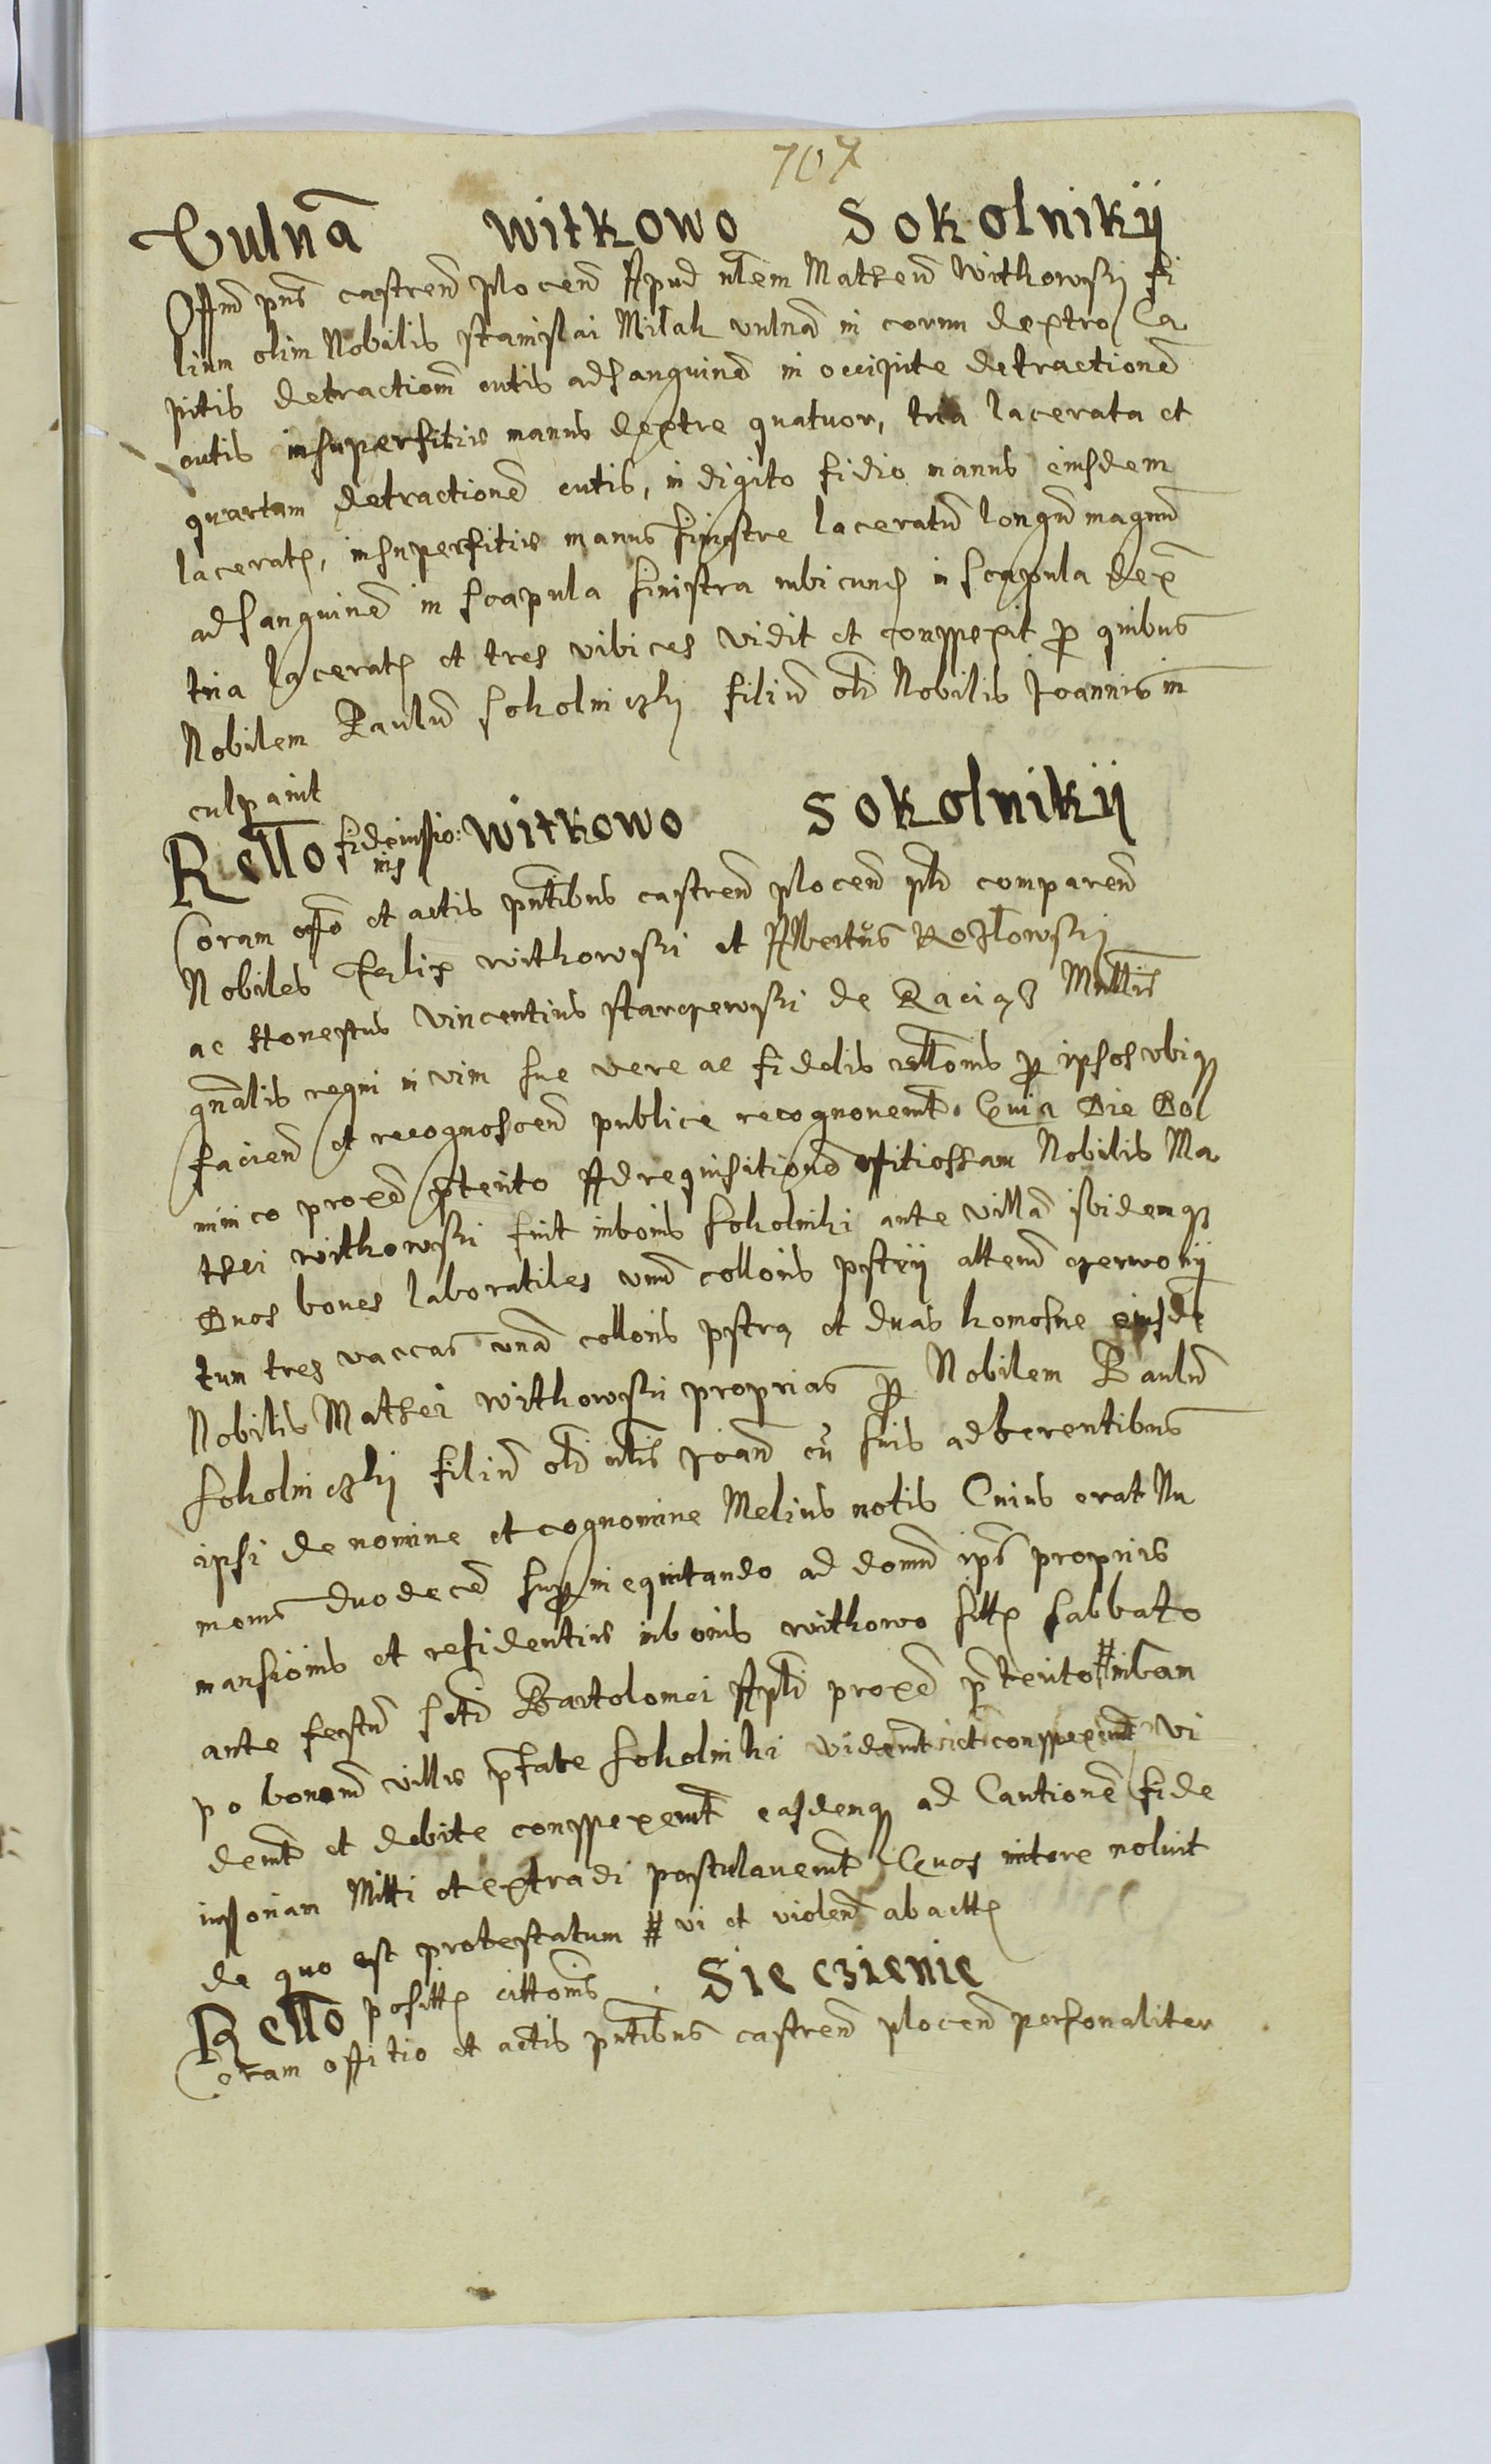 707
Vulna Witkowo Sokolnikij
Offm pns castren plocen Apud nlem Matheu Withowskj fi
lium olim Nobilis stanislai Milak vulna in cornu dextro Ca
pitis detractiom cutis ad sanguine in occipite detractione
cutis in superfitie manus dextre quatuor, tria lacerata et
quartam detractione cutis, in digito fidio manus eiusdem
lacerat, in superfitie manus sinistre laceratu longu magnu
ad sanguine in scapula sinistra rubicun in scapula dex
tria lacerat et tres vibices vidit et conspexit p quibus
Nobilem Paulu sokolniczkj filiu oli Nobilis Joannis in
culpavit
Rello fideiussio: Witkowo Sokolnikij
nis
Coram offo et actis pntibus castren plocen psl comparen
Nobiles Felix withowski et Albertus Kozlowskj
ac Honestus Vincentius starczewski de Raciąz Mnllis
gnalis regni in vim sue vere ac fidelis rellonis p ipsos vbiq
facien et recognoscen publice recognoverut. Quia Die Do
minico proxe pterito Ad requisitione offitiossam Nobilis Ma
thei withowski fuit in bonis sokolniki ante villa ibidemq
Duos boves laboratiles unu colloris pstrij alteru czerwonij
tum tres vaccas una colloris pstra et duas homosne eiusde
Nobilis Mathei withowski proprias p Nobilem Paulu
sokolniczkj filiu oli nlis Joan cu suis adherentibus
ipsi de nomine et cognomine Melius notis Cuius erat Nu
merus duodece sup inequitando ad domu ips propriis
mansionis et residentiis in bonis withowo sitt sabbato
ante festu scti Bartolomei Apli proxe pterito # in Cam
po bonoru villis pfate sokolniki viderut et conspexerut vi
derut et debite conspexerut easdemq ad Cautione fide
iussoriam Mitti et extradi postulaverut Quos mittere noluit
de quo est protestatum # vi et violent abactt
Rello positt cittonis Sie czienie
Coram offitio et actis pntibus castren plocen personaliter